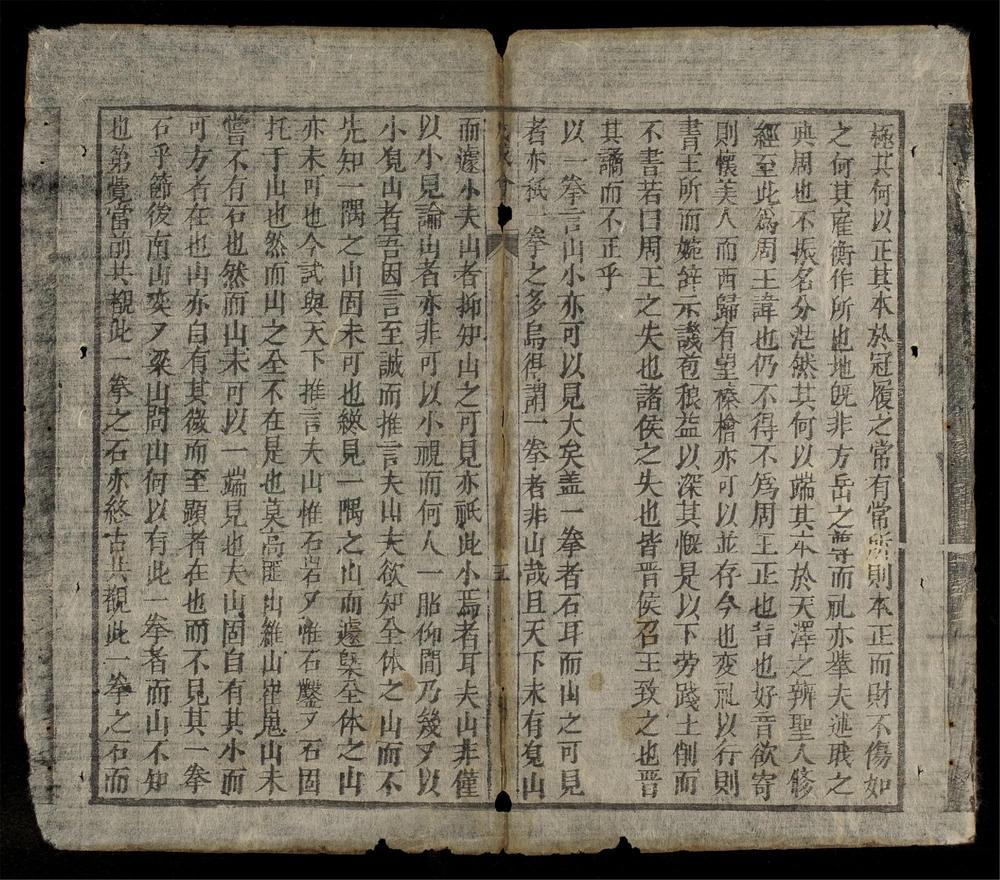 極其何以正其本於冠履之常有常所則本正而財不傷如
之何其雇衡作所也地既非方岳之尊而礼亦葦夫述職之
典周也不振名分茫然其何以端其本於天澤之辨聖人修
經至此為周王諱也仍不得不為周王正也昔也好音欲寄
則懷美人而西歸有望榛檜亦可以並存今也变礼以行則
書王所而婉辞示譏苞稂益以深其慨是以下劳踐土削而
不書若曰周王之失也諸侯之失也皆晋侯召王致之也晋
其譎而不正乎
以一拳言山小亦可以見大矣盖一拳者石耳而山之可見
者亦祇一拳之多烏得謂一拳者非山哉且天下未有見山
而遽小夫山者抑知山之可見亦祇此小焉者耳夫山非僅
以小見論山者亦非可以小視而何人一貽仰間乃幾ヌ以
小見山者吾因言至誠而推言夫山夫欲知全体之山而不
先知一隅之山固未可也縂見一隅之山而遽槩全体之山
亦未可也今試與天下推言夫山惟石岩ヌ惟石鑿ヌ石固
托于山也然而山之全不在是也莫高匪山維山崔嵬山未
嘗不有石也然而山未可以一端見也夫山固自有其小而
可方者在也山亦自有其微而至顯者在也而不見其一拳
石乎節後南山奕ヌ梁山問山何以有此一拳者而山不知
也第覺當前共覩此一拳之石亦終古共覩此一拳之石而
五